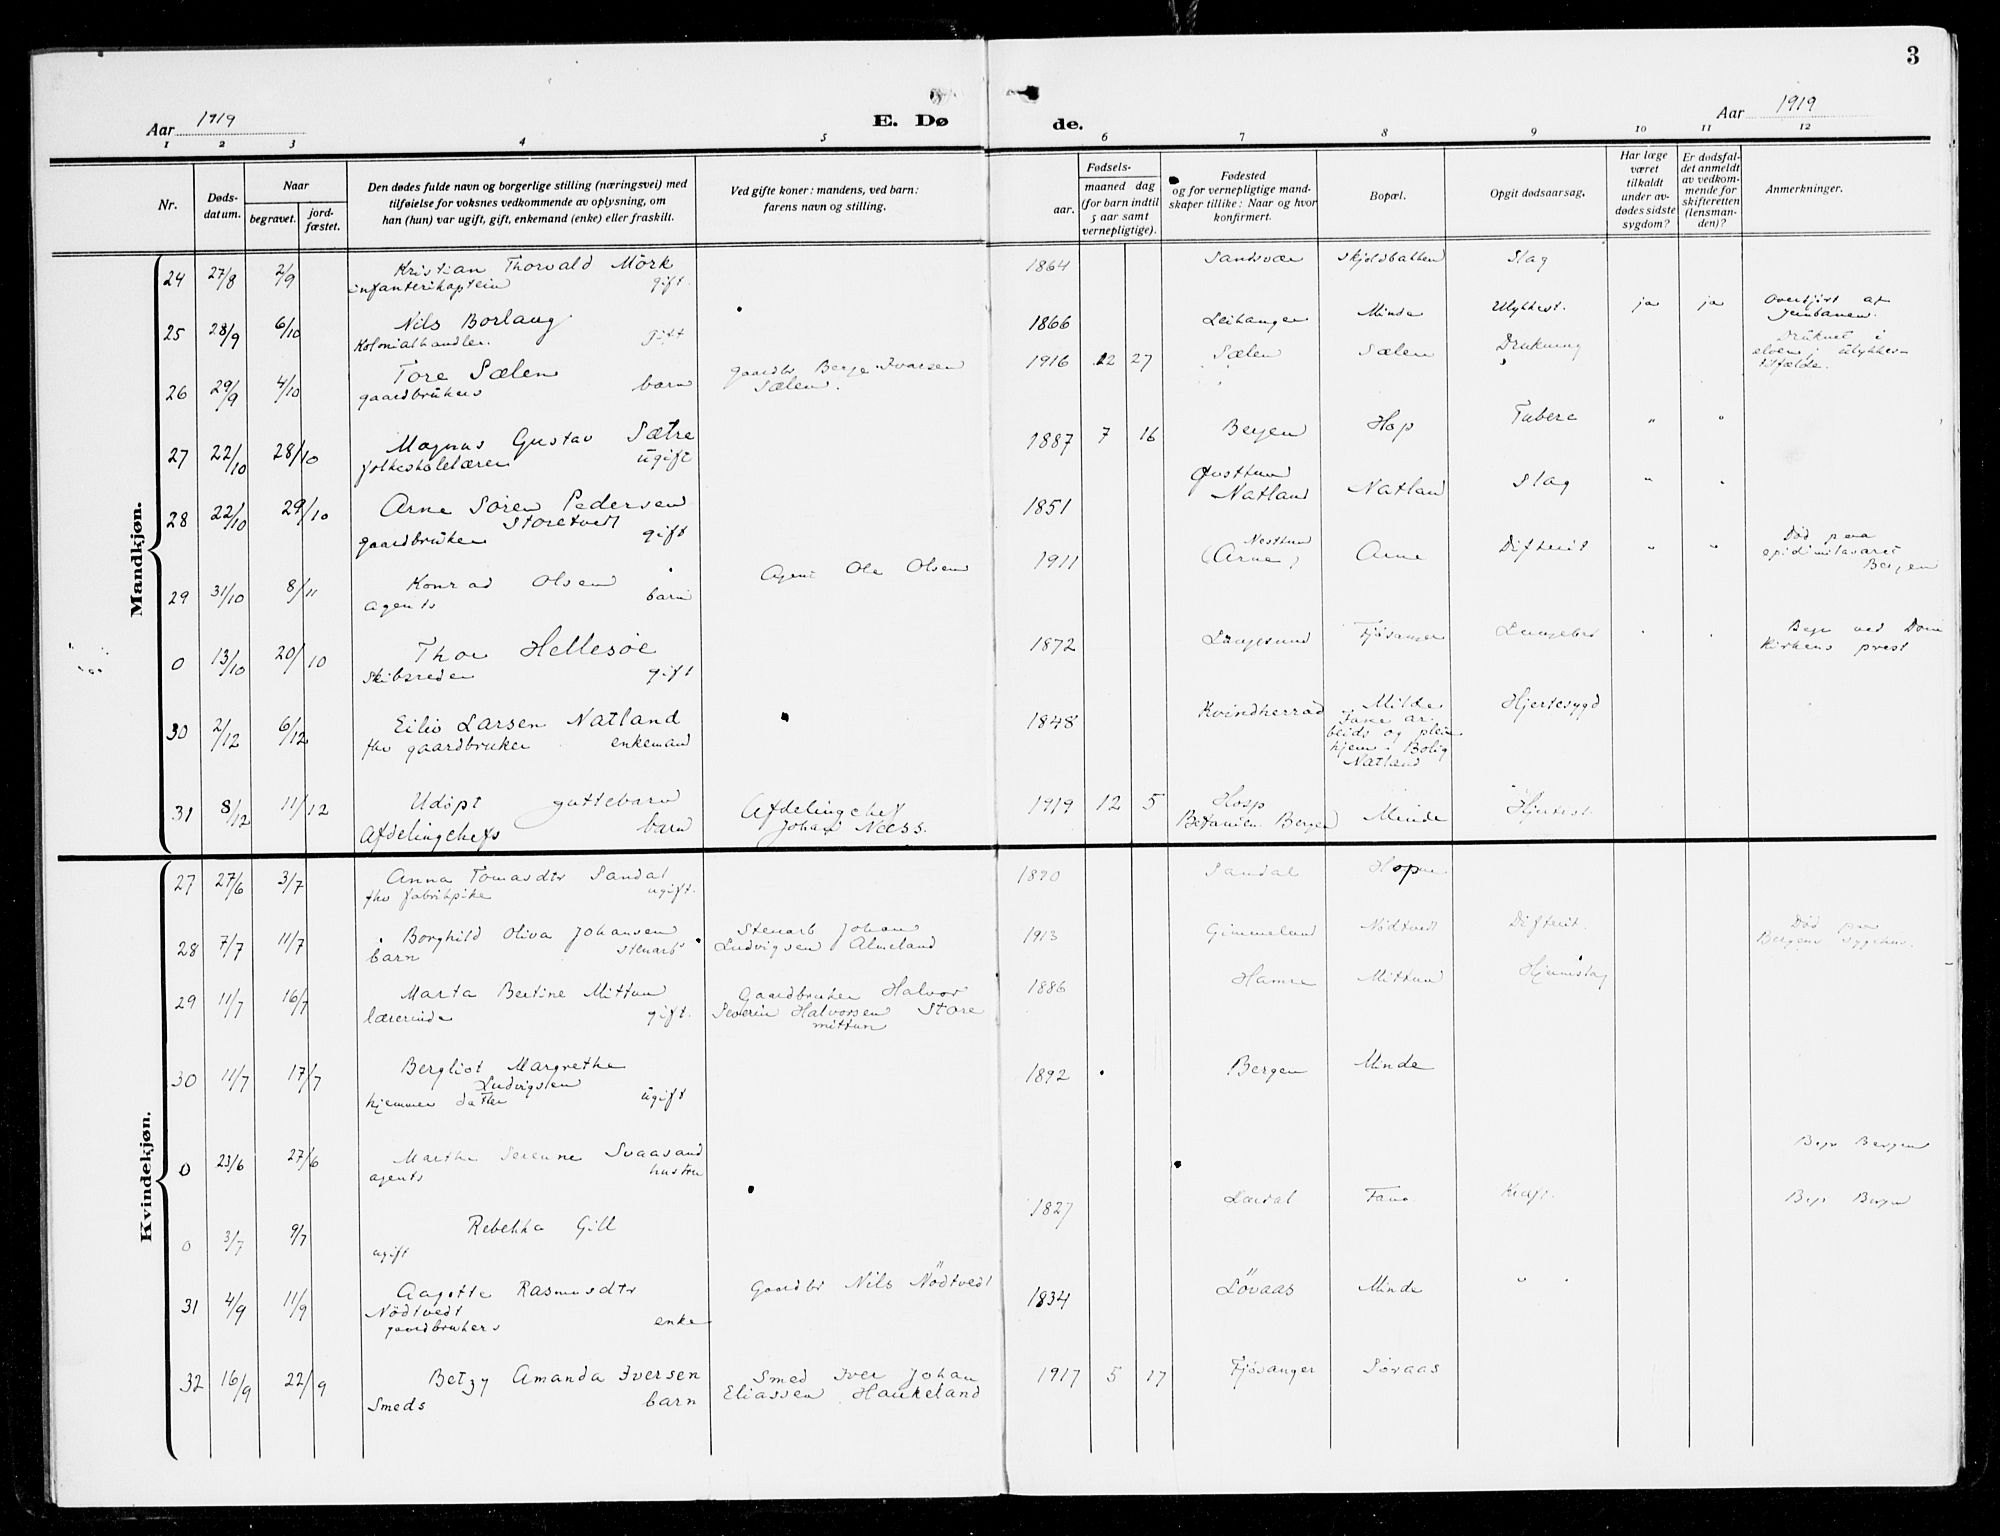 3
Aar 1919
E. Dø
de.
Aar 1919
1 2 3 4 5 6 7 8 9 10 11 12
Nr.
Døds-
datum.
Naar
begravet.
jord-
fæstet.
Den dødes fulde navn og borgerlige stilling (næringsvei) med
tilføielse for voksnes vedkommende av oplysning, om
han (hun) var ugift, gift, enkemand (enke) eller fraskilt.
Ved gifte koner: mandens, ved barn:
farens navn og stilling.
Fødsels-
aar.
maaned dag
(for barn indtil
5 aar samt
vernepligtige).
Fødested
og for vernepligtige mand-
skaper tillike: Naar og hvor
konfirmert.
Bopæl.
Opgit dødsaarsag.
Har læge
været
tilkaldt
under av-
dødes sidste
sygdom?
Er dødsfal-
det anmeldt
av vedkom-
mende for
skifteretten
(lensman-
den)?
Anmerkninger.
Mandkjøn.
24 27/8 2/9 Kristian Thorvald Mörk 1864 Sandsvær Skjoldbakken Slag
infanterikaptein gift.
25 28/9 6/10 Nils Borlaug 1866 Leikanger Minde Ulykkest. ja ja Overkjört af
Kolonialhandler. gift Jernbanen.
26 29/9 4/10 Tore Sælen gaardbr Berge Ivarsen 1916 12 27 Sælen Sælen Drukning Druknet i
gaardbrukers barn Sælen. elven, ulykkes-
tilfælde.
27 22/10 28/10 Magnus Gustav Sætre 1887 7 16 Bergen Hop Tuberc " "
folkeskolelærer ugift
28 22/10 29/10 Arne Sören Pedersen 1851 Natland Natland Slag " "
Storetvedt
gaardbruker gift
29 31/10 8/11 Konrad Olsen Agent Ole Olsen 1911 Nesttun (Arne) Arne Difterit " " Død paa
agents barn epidimilasaret
Bergen
0 13/10 20/10 Thor Hellesöe 1872 Langesund Fjösanger Lungebet Begr ved Dom
Skibsreder gift Kirkens prest
30 2/12 6/12 Eilio Larsen Natland 1848 Kvindherrad Milde Hjertesygd
fhv gaardbruker enkemand Fane ar.
beids og pleie
hjem. Bolig
Natland
31 8/12 11/12 Udöpt guttebarn Afdelingchef 1919 12 5 Hosp Minde
Afdelingchefs barn Johan Næss. Betanien Bergen
Kvindekjøn.
27 27/6 3/7 Anna Tomasdtr Sandal 1890 Sandal Hope
fhv fabrikpike ugift.
28 7/7 11/7 Borghild Oliva Johansen Stenarb Johan 1913 Gimmeland Nödtvedt Difterit. Død paa
barn stenarbs Ludvigsen Almeland Bergens sygehus.
29 11/7 16/7 Marta Bertine Mittun Gaardbruker Halvor 1886 Hamre Mittun Hjerneslag
lærerinde gift. Severin Halvorsen Store
mittun
30 11/7 17/7 Bergliot Margrethe 1892 Bergen Minde
Ludvigsen
hjemmev datter ugift
0 23/6 27/6 Marthe Serenne Svaasand Begr Bergen
agents hustru
0 3/7 9/7 Rebekka Gill 1827 Lærdal Fana Kræft. Begr Bergen
ugift
31 4/9 11/9 Aagotte Rasmusdtr Gaardbr Nils Nödtvedt 1834 Lövaas Minde " "
Nödtvedt
gaardbrukers enke
32 16/9 22/9 Betzy Amanda Iversen Smed Iver Johan 1917 5 17 Fjösanger Söraas
Smeds barn Eliassen Haukeland